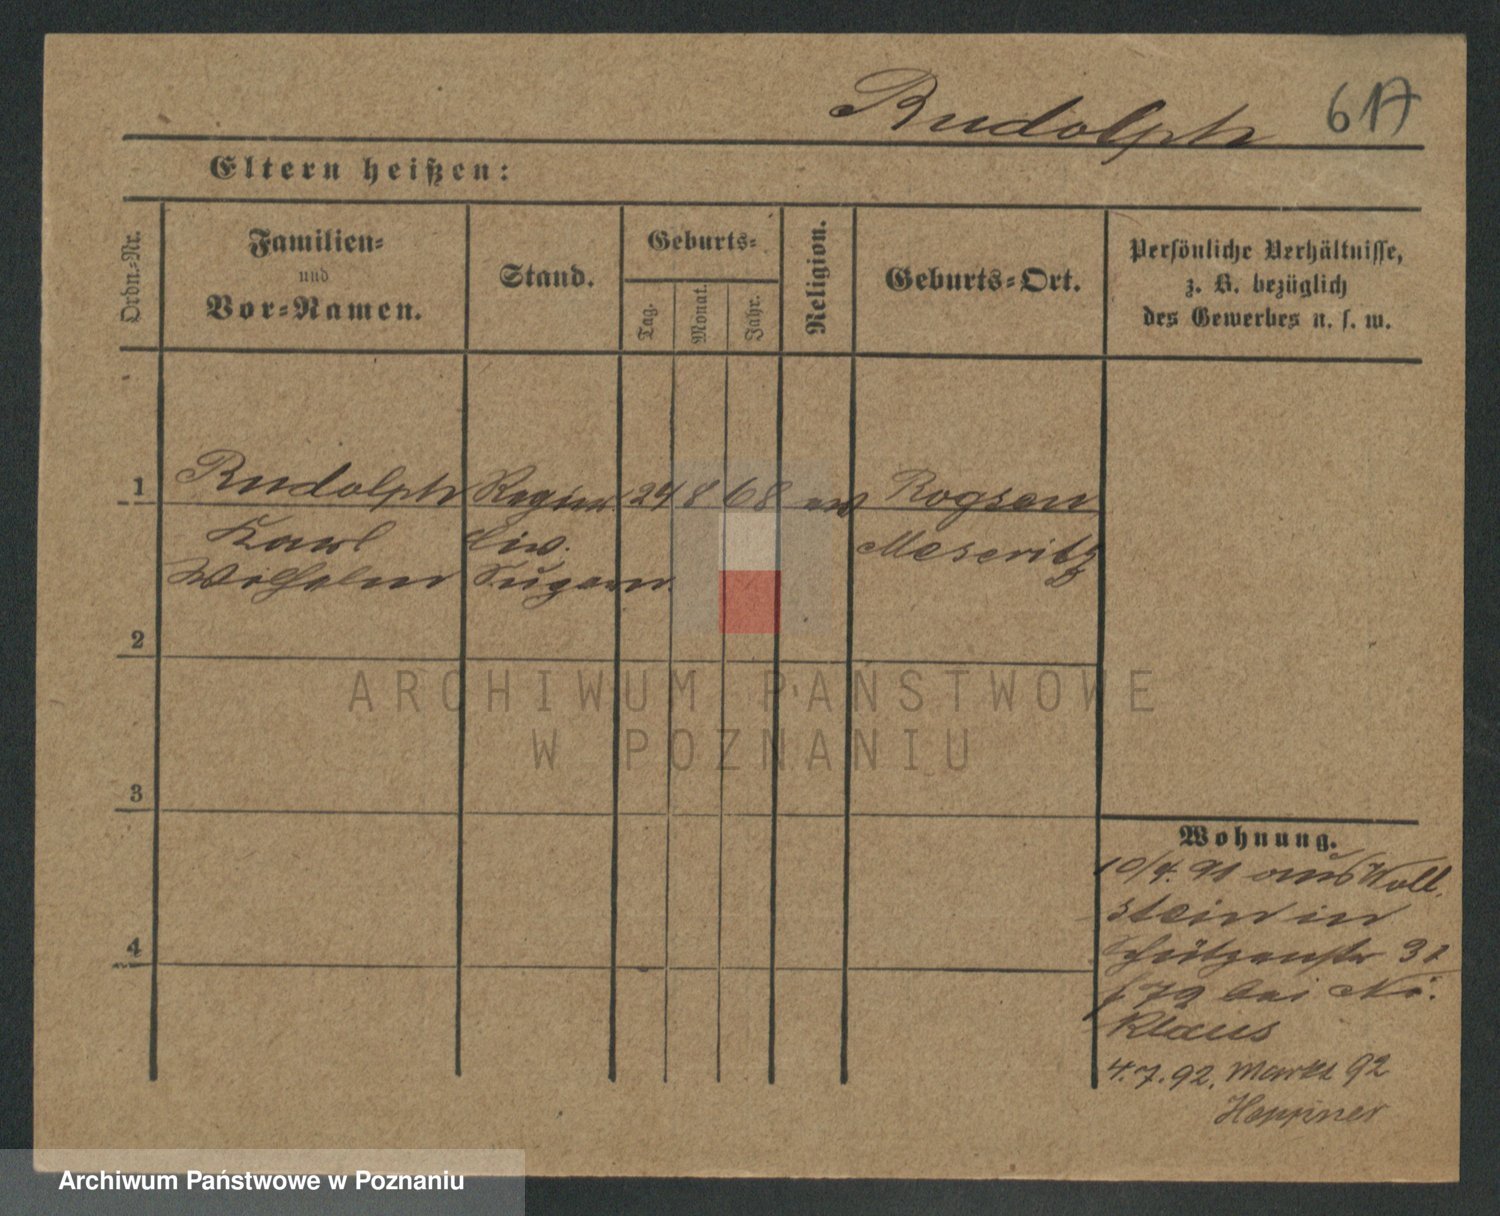 Rudolph 617
Eltern heißen:
Ordn.-Nr.
Familien-
und
Vor-Namen.
Stand.
Geburts-
Tag.
Monat.
Jahr.
Religion.
Geburts-Ort.
Persönliche Verhältnisse,
z. B. bezüglich
des Gewerbes u. s. w.
1 Rudolph Regier. 24 8 68 ev Rogsen
Karl Civ. Meseritz
Wilhelm Sugern.
2
3
4
Wohnung.
10/4. 91 aus Woll
stein in
Schützenstr 31
bei Ni.
klaus
4.7.92. Markt 92
Heppner
ARCHIWUM PAŃSTWOWE
W POZNANIU
Archiwum Państwowe w Poznaniu